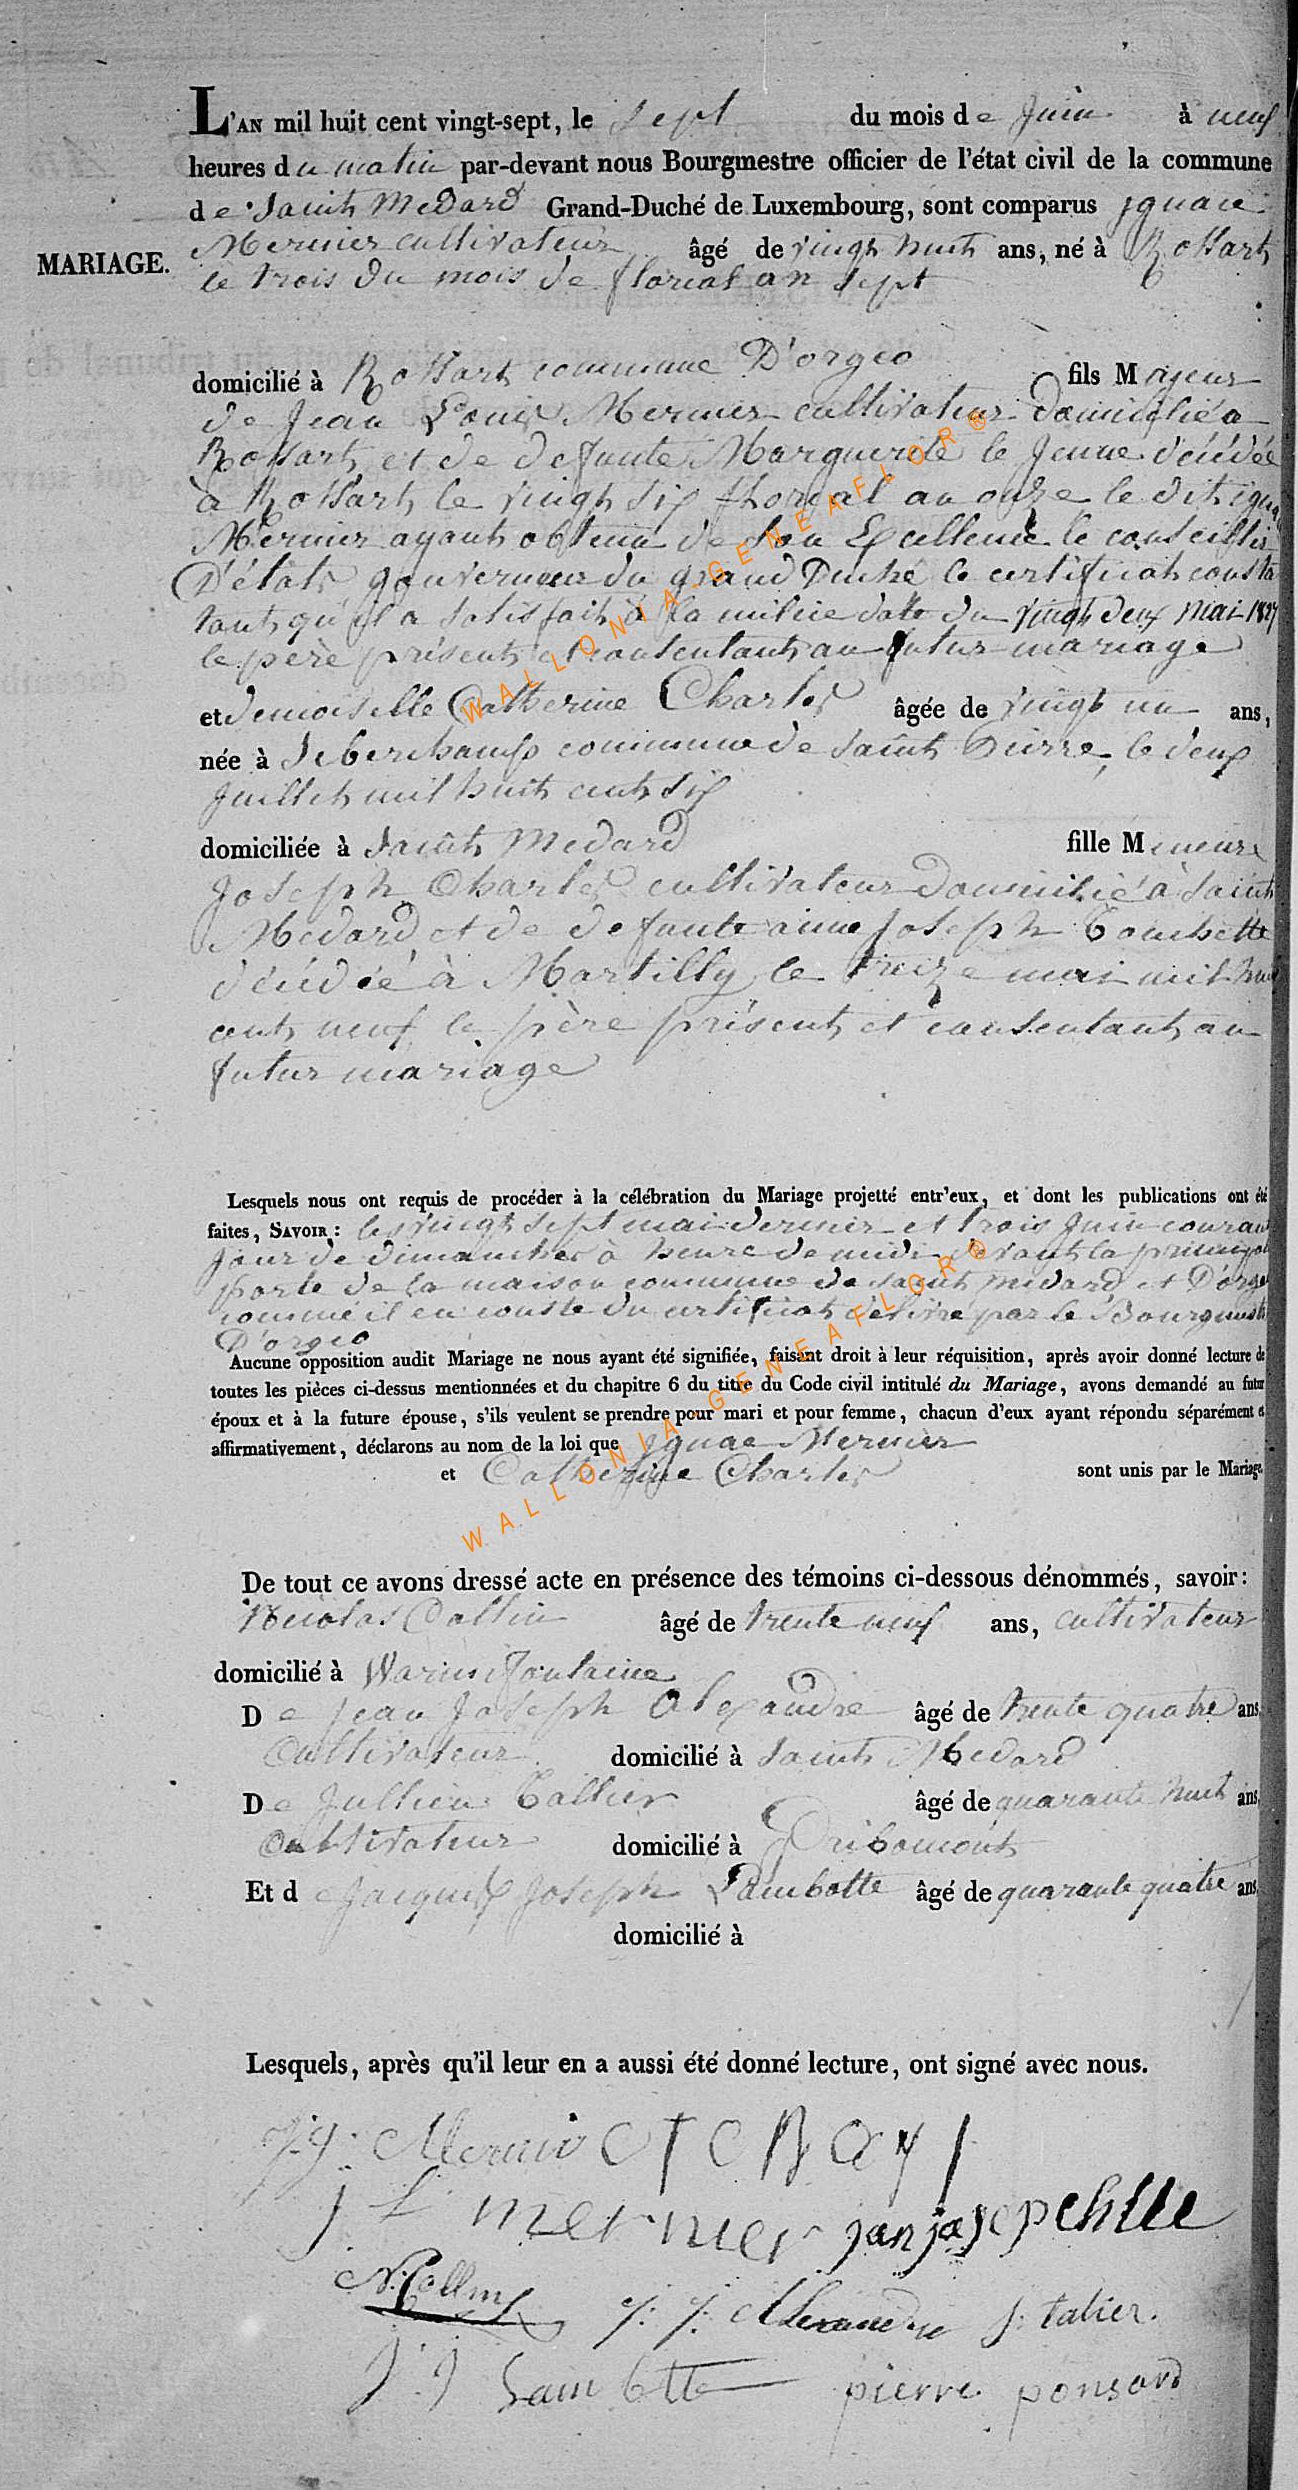 L'AN mil huit cent vingt-sept, le sept du mois de juin à neuf
heures du matin par-devant nous Bourgmestre officier de l'état civil de la commune
de Saint Médard Grand-Duché de Luxembourg, sont comparus ignace
MARIAGE.
Mernier cultivateur âgé de vingt huit ans, né à Rossart
le trois du mois de floréal an sept
domicilié à Rossart commune D'orgeo fils Majeur
de Jean Louis Mernier cultivateur domicilié a
Rossart et de defunte Marguerite le Jeune décédée
à Rossart le vingt six floréal an onze le dit
Mernier ayant obtenu de Son Excellence le conseiller
D'état gouverneur du grand Duché le certificat consta
tant qu'il a satisfait à la milice daté du vingt deux mai 1827
le père présent et consentant au futur mariage
et demoiselle Catherine Charles âgée de vingt un ans,
née à Seberchamp commune de Saint Pierre, le deux
juillet mil huit cent six
domiciliée à Saint Médard fille Mineure
Joseph Charles cultivateur Domicilié à Saint
Médard et de defunte anne joseph
décédée à Martilly le treize mai mil huit
cent neuf le père présent et consentant au
futur mariage
Lesquels nous ont requis de procéder à la célébration du Mariage projetté entr'eux, et dont les publications ont été
faites, SAVOIR : les vingt sept mai dernier et trois juin courant
jour de dimanche à heure de midi devant la principale
porte de la maison commune de saint médard et D'orgeo
comme il en conste du certificat délivré par le Bourgmestre
D'orgeo
Aucune opposition audit Mariage ne nous ayant été signifiée, faisant droit à leur réquisition, après avoir donné lecture de
toutes les pièces ci-dessus mentionnées et du chapitre 6 du titre du Code civil intitulé du Mariage, avons demandé au futur
époux et à la future épouse, s'ils veulent se prendre pour mari et pour femme, chacun d'eux ayant répondu séparément et
affirmativement, déclarons au nom de la loi que ignace Mernier
et Catherine Charles sont unis par le Mariage.
De tout ce avons dressé acte en présence des témoins ci-dessous dénommés, savoir :
Nicolas Collin âgé de trente neuf ans, cultivateur
domicilié à Warmifontaine
De jean joseph alexandre âgé de trente quatre ans
cultivateur domicilié à Saint Médard
De Jullien Tallier âgé de quarante huit ans,
Cultivateur domicilié à Gribomont
Et de jacques joseph Lambotte âgé de quarante quatre ans
domicilié à
Lesquels, après qu'il leur en a aussi été donné lecture, ont signé avec nous.
J: g: Mernier
j l mernier
N: Collin J: J: Alexandre j: talier.
J: J Lambotte pierre ponsard
WALLONIA-GENEAFLOR®
WALLONIA-GENEAFLOR®